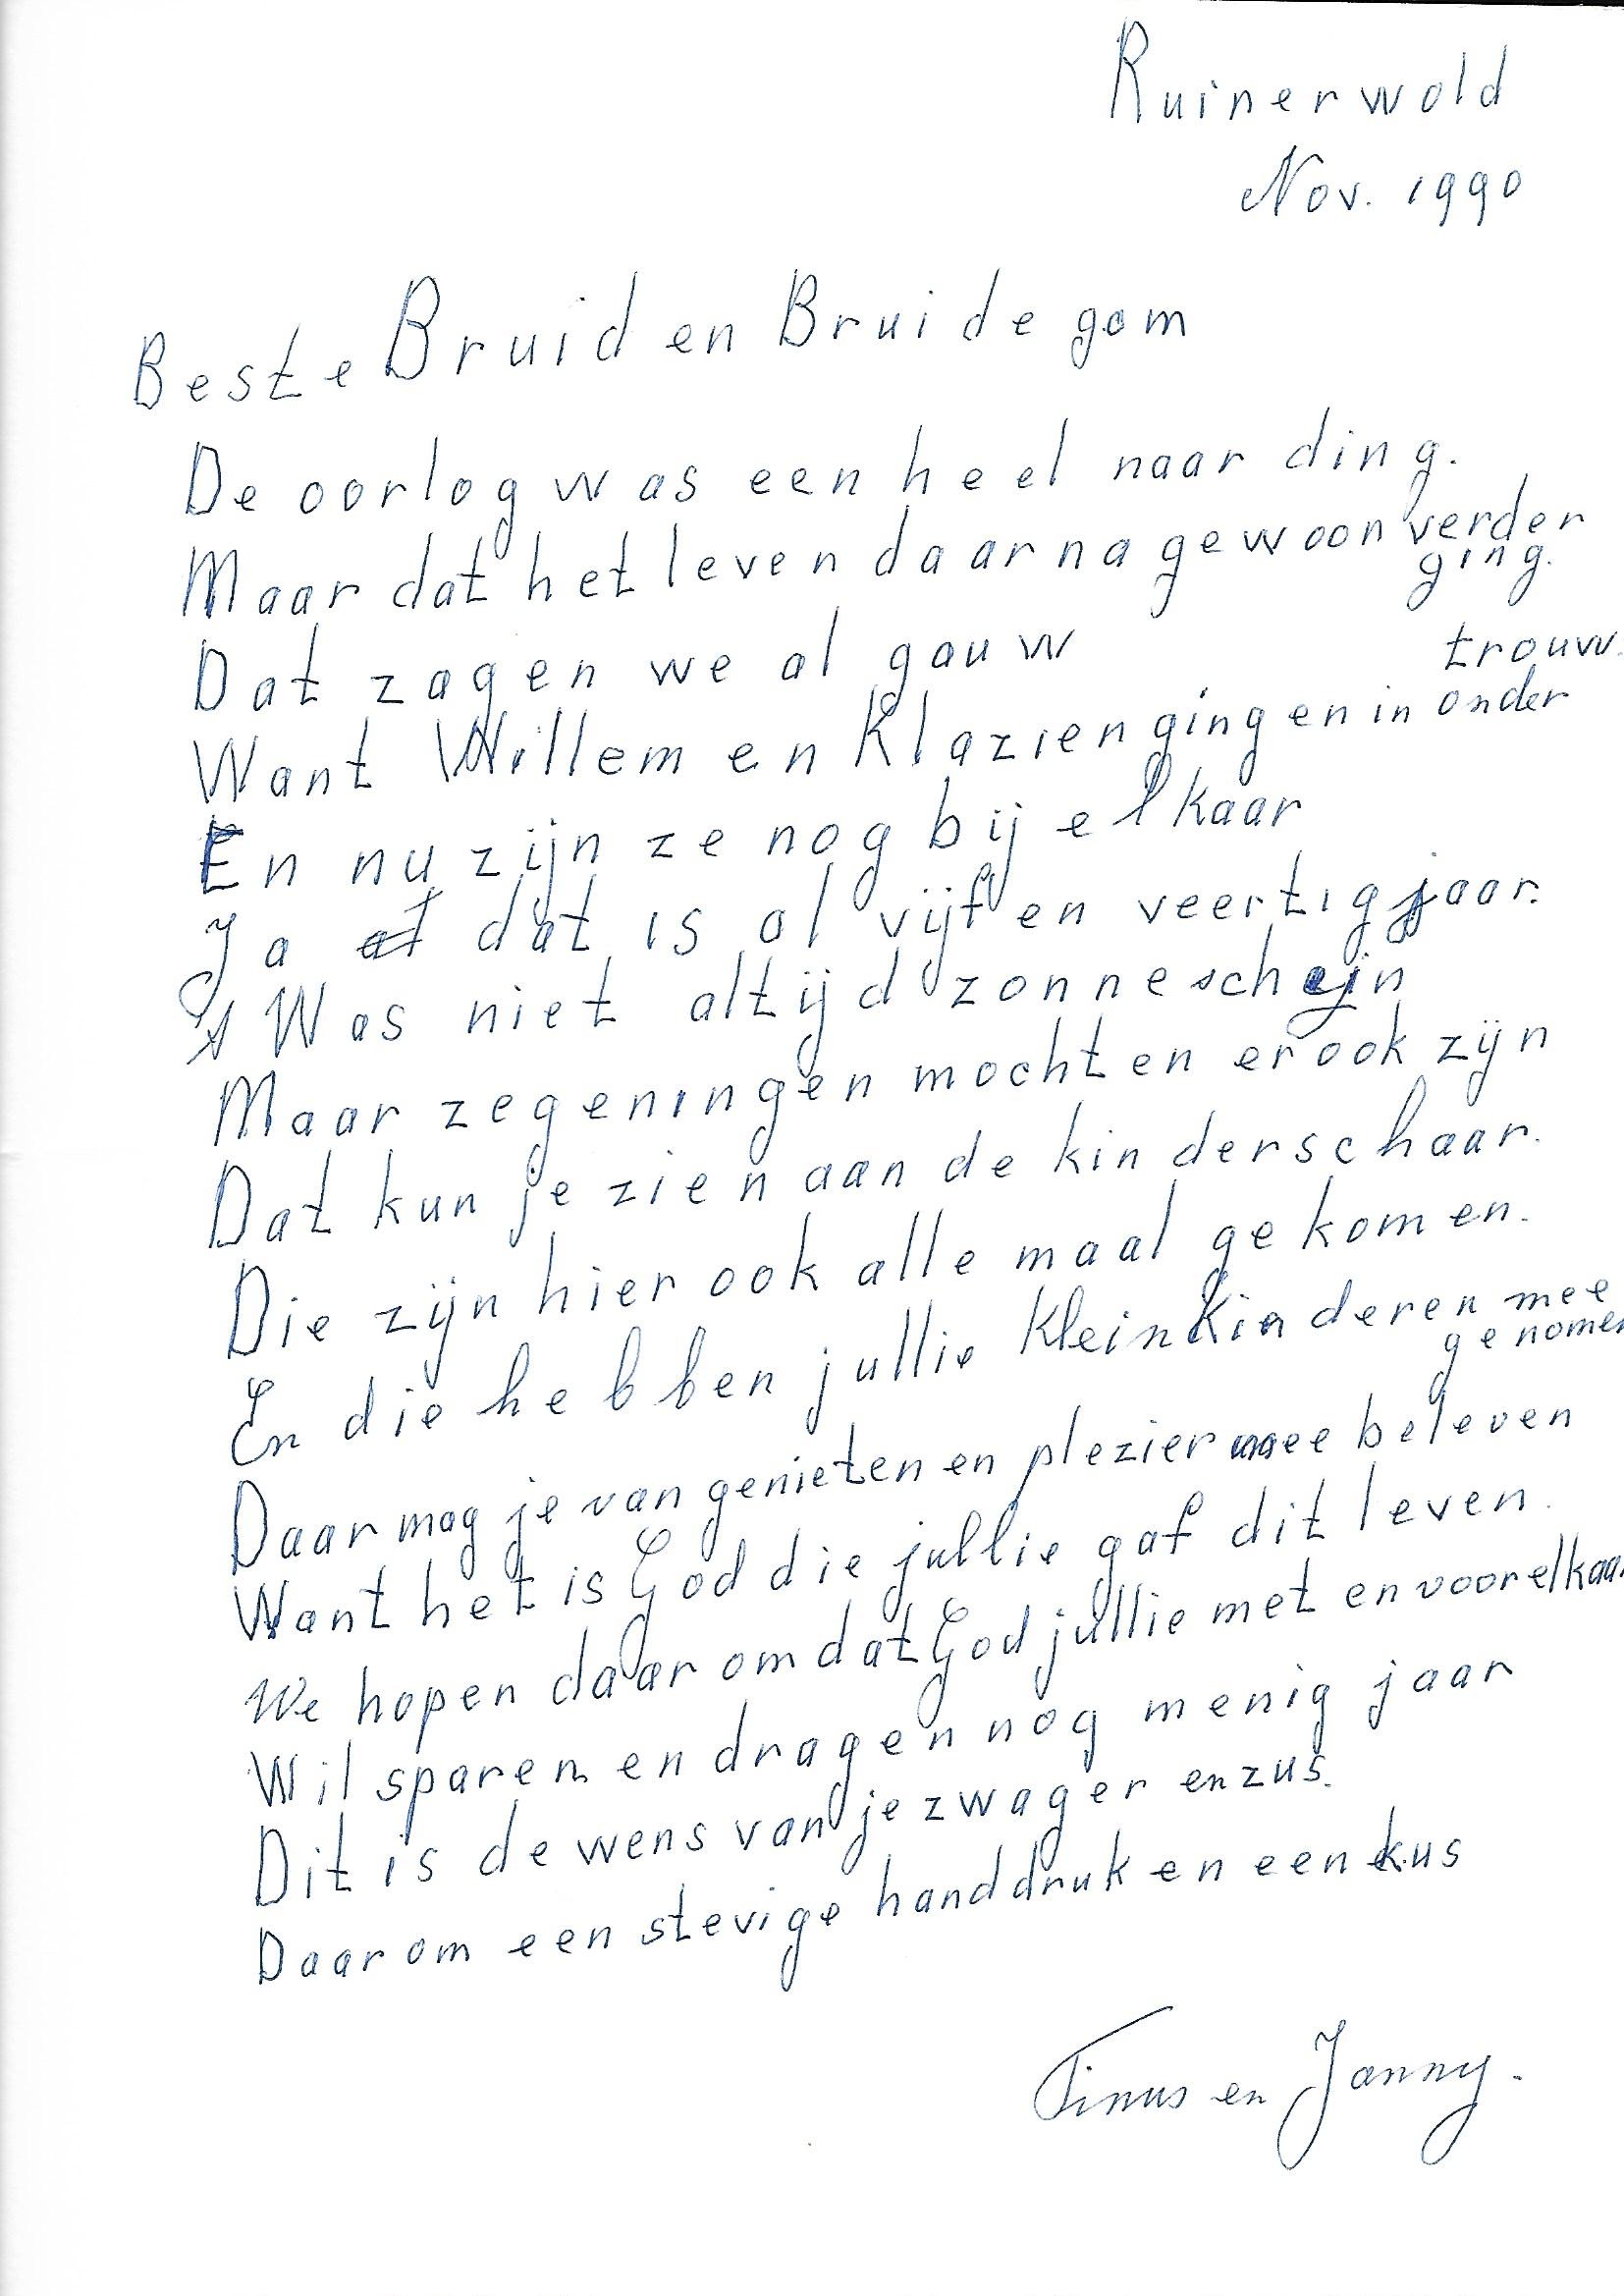 Ruinerwold
Nov. 1990
Beste Bruid en Bruidegom
De oorlog was een heel naar ding.
Maar dat het leven daarna gewoon verder
ging.
Dat zagen we al gauw
Want Willem en Klazien gingen in onder
trouw.
En nu zijn ze nog bij elkaar
Ja al dat is al vijf en veertig jaar.
s Was niet altijd zonneschijn
Maar zegeningen mochten er ook zijn
Dat kun je zien aan de kinderschaar.
Die zijn hier ook allemaal gekomen.
En die hebben jullie kleinkinderen mee
genomen
Daar mag je van genieten en plezier mee beleven
Want het is God die jullie gaf dit leven.
We hopen daarom dat God jullie met en voor elkaar
Wil sparen en dragen nog menig jaar
Dit is de wens van je zwager en zus.
Daarom een stevige handdruk en een kus
Tinus en Janny.